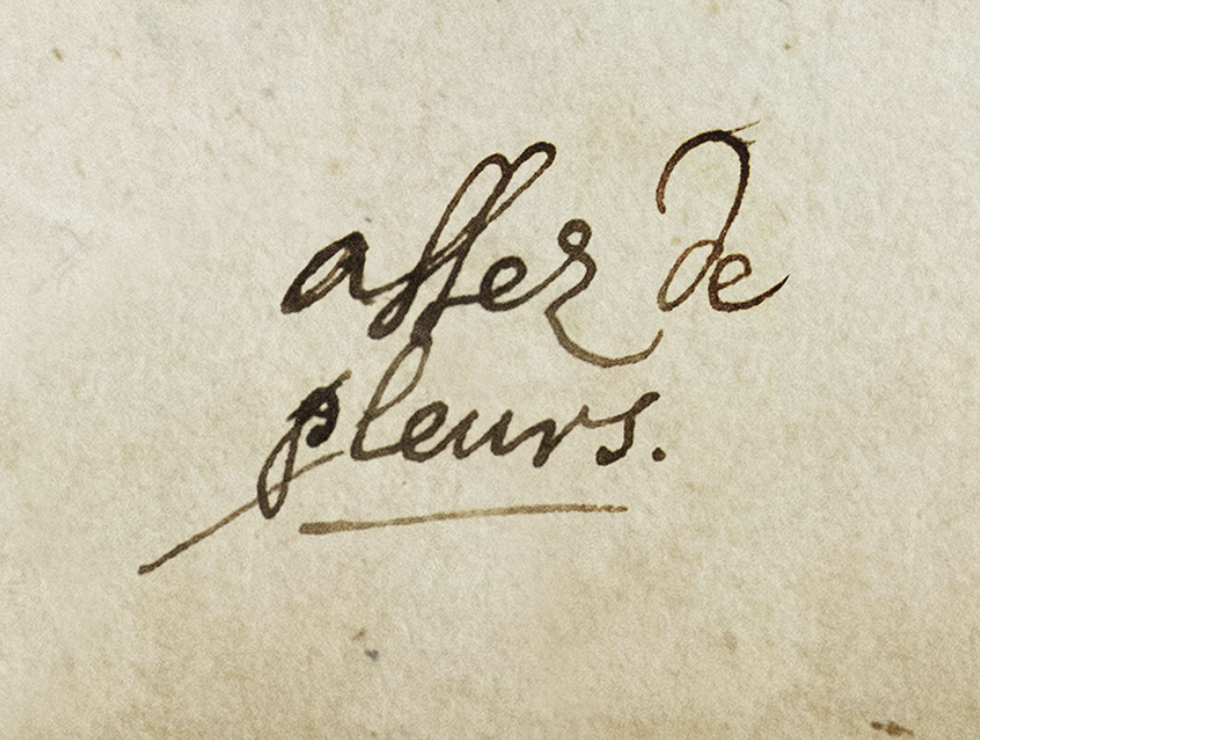 assez de
pleurs.